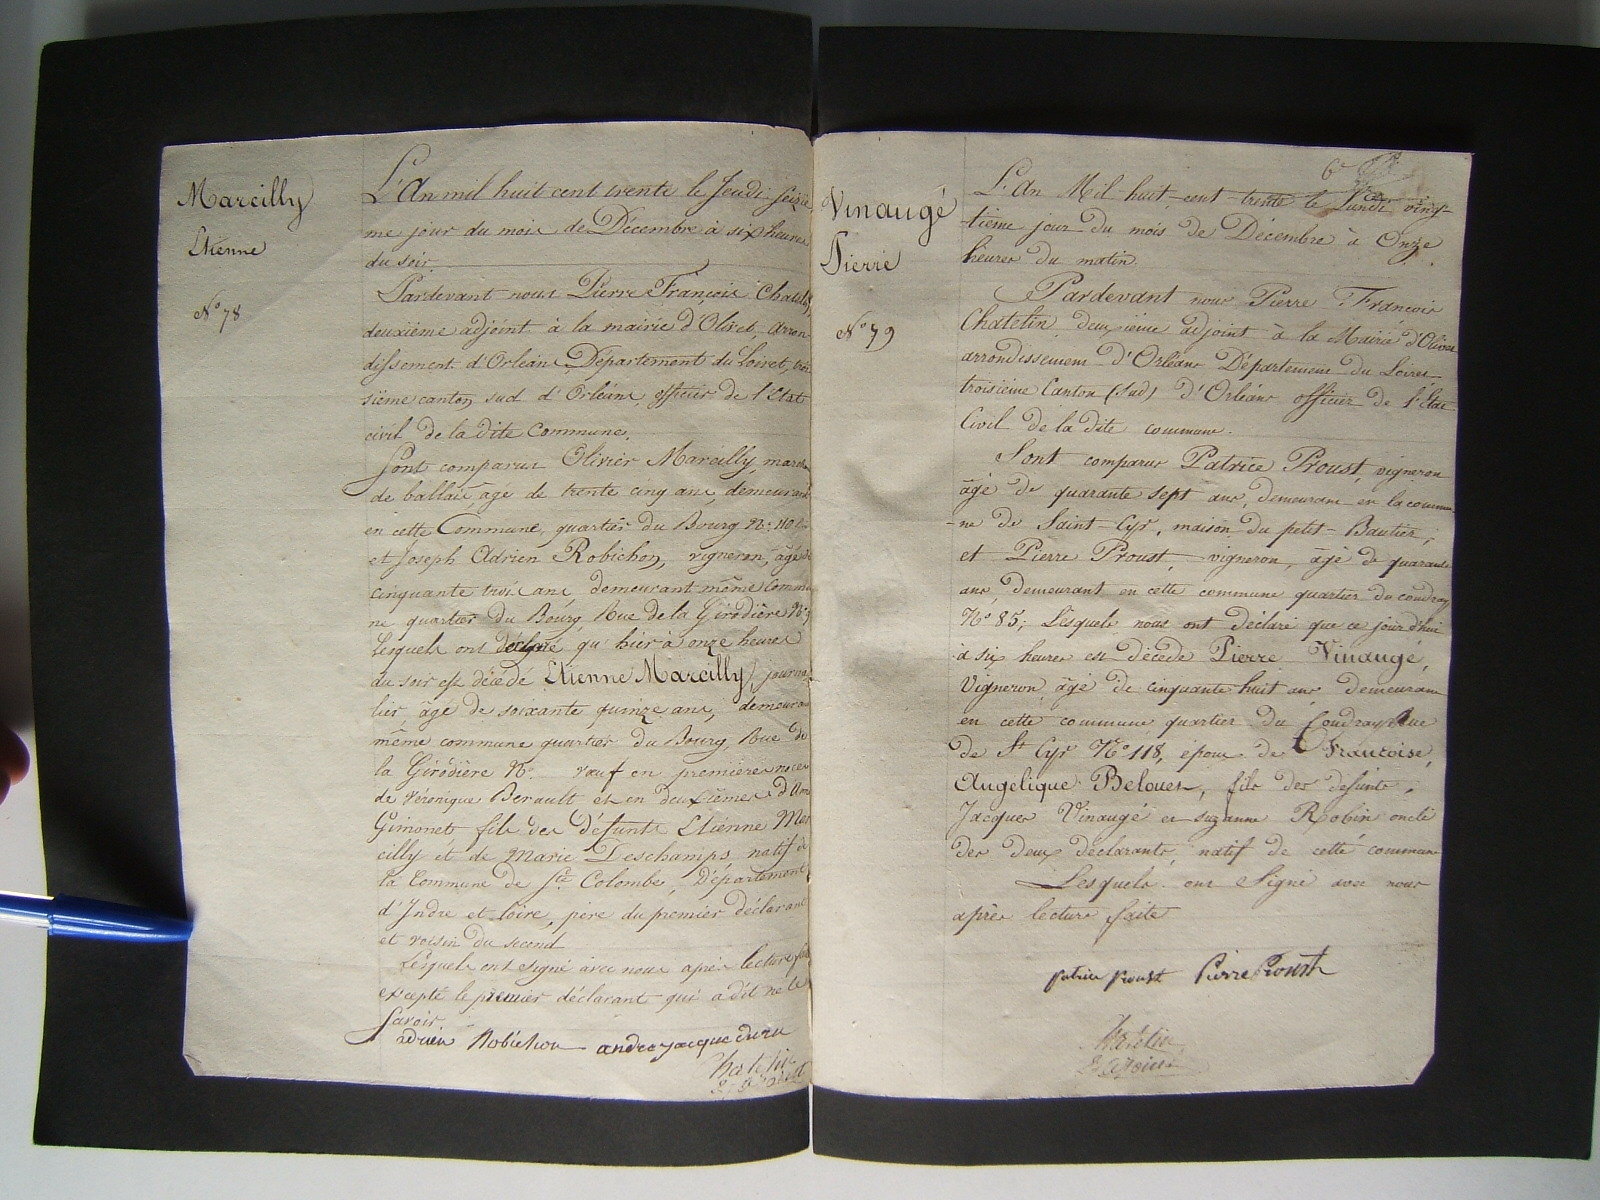 Marcilly
Etienne
N° 78
L'An mil huit cent trente le Jeudi seizie
me jour du mois de Décembre à six heures
du soir.
Pardevant nous Pierre François Chatelin
deuxième adjoint à la mairie d'Olivet, arron
dissement d'Orléans Département du Loiret, troi
sième canton sud d'Orléans, officier de l'Etat
civil de la dite Commune.
Sont comparus Olivier Marcilly march
de ballais, agé de trente cinq ans demeurant
en cette Commune, quartier du Bourg N° 110
et Joseph Adrien Robichon, vigneron, âgé de
cinquante trois ans demeurant même Commu
ne quartier du Bourg, Rue de la Girodière N°
Lesquels ont déclaré qu'hier à onze heures
du soir est décédé Etienne Marcilly, journa
lier, âgé de soixante quinze ans, demeurant
même commune quartier du Bourg, Rue de
la Girodière N° veuf en premières noces
de Véronique Berault et en deuxièmes d'Anne
Gimonet fils des défunts Etienne Mar
cilly et de Marie Deschamps, natif de
la Commune de Ste Colombe, Département
d'Indre et Loire, père du premier déclarant
et voisin du second
Lesquels ont signé avec nous après lecture faite
excepté le premier déclarant qui a dit ne le
savoir.
adrien Robichon andre jacque
Chatelin
Vinaugé
Pierre
N° 79
6e
L'An Mil huit cent trente le Lundi ving-
tième jour du mois de Décembre à Onze
heures du matin.
Pardevant nous Pierre François
Chatelin deuxième adjoint à la Mairie d'Olivet
arrondissement d'Orléans Département du Loiret
troisième Canton (Sud) d'Orléans officier de l'État
Civil de la dite commune.
Sont comparus Patrice Proust, vigneron
âgé de quarante sept ans, demeurant en la commu
-ne de Saint-Cyr, maison du petit-Bautier,
et Pierre Proust, vigneron, âgé de quarante
ans, demeurant en cette commune quartier du coudray
N° 85; Lesquels nous ont déclaré que ce jourd'hui
à six heures est décédé Pierre Vinaugé,
Vigneron, âgé de cinquante huit ans demeurant
en cette commune quartier du Coudray Rue
de St Cyr N° 118, époux de Françoise,
Angelique Belouet, fils des défunts,
Jacques Vinaugé et suzanne Robin oncle
des deux déclarants, natif de cette commune
Lesquels ont Signé avec nous
après lecture faite
patrice proust Pierre Proust
Chatelin